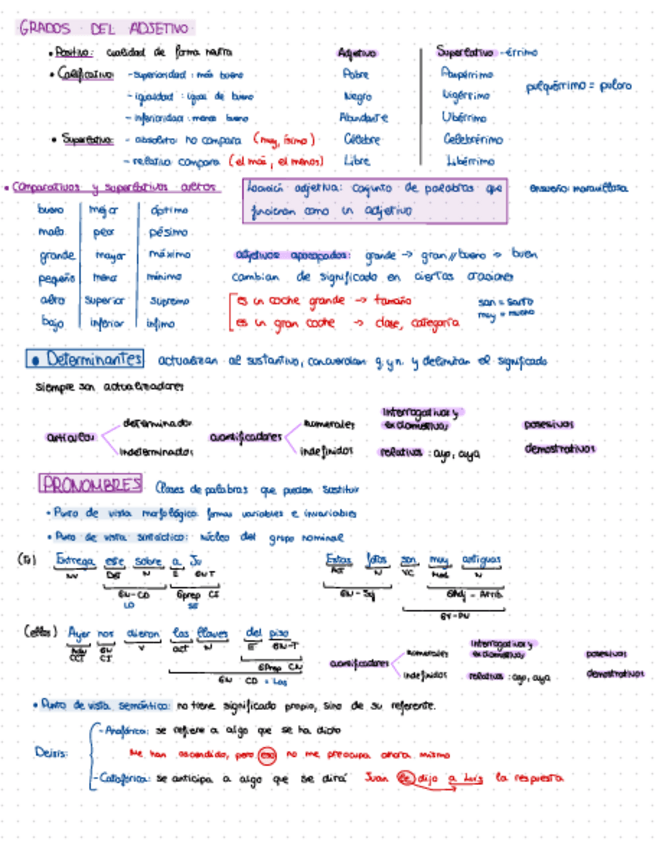 GRADOS DEL ADJETIVO
• Positivo: cualidad de forma neutra
Adjetivo
Superlativo -érrimo
• Calificativo: - superioridad: más bueno
Pobre
Paupérrimo
pulquérrimo = pulcro
- igualdad: igual de bueno
Negro
Nigérrimo
- inferioridad: menos bueno
Abundante
Ubérrimo
• Superlativo: - absoluto: no compara (muy, ísimo)
Célebre
Celebérrimo
- relativo compara (el más, el menos)
Libre
Libérrimo
• Comparativos y superlativos
Locución adjetiva: conjunto de palabras que
funcionan como un adjetivo
ensueño: maravillosa
bueno mejor óptimo
malo peor pésimo
grande mayor máximo
pequeño menor mínimo
alto superior supremo
bajo inferior ínfimo
adjetivos apocopados: grande → gran // bueno → buen
cambian de significado en ciertas oraciones
es un coche grande → tamaño
es un gran coche → clase, categoría
san = santo
muy = mucho
• Determinantes actualizan al sustantivo, concuerdan g. y n. y delimitan el significado
siempre son actualizadores
artículos
determinados
indeterminados
cuantificadores
numerales
indefinidos
interrogativos y
exclamativos
relativos: cuyo, cuya
posesivos
demostrativos
PRONOMBRES Clases de palabras que pueden sustituir
• Punto de vista morfológico: formas variables e invariables
• Punto de vista sintáctico: núcleo del grupo nominal
(Tú) Entrega ese sobre a Ju
NV Det N E GN-T
GN-CD Gprep CI
LO SE
Estas fotos son muy antiguas
Act N VC Mod N
GN-Suj GAdj - Atrib
GV-PN
(ellos) Ayer nos dieron las llaves del piso
CCT GN CI V act N E GN-T
GPrep CN
GN CD = Las
cuantificadores
numerales
indefinidos
interrogativos y
exclamativos
relativos: cuyo, cuya
posesivos
demostrativos
• Punto de vista semántico: no tiene significado propio, sino de su referente.
Deixis:
- Anafórica: se refiere a algo que se ha dicho
Me han ascendido, pero eso no me preocupa ahora mismo
- Catafórica: se anticipa a algo que se dirá Juan le dijo a Luis la respuesta